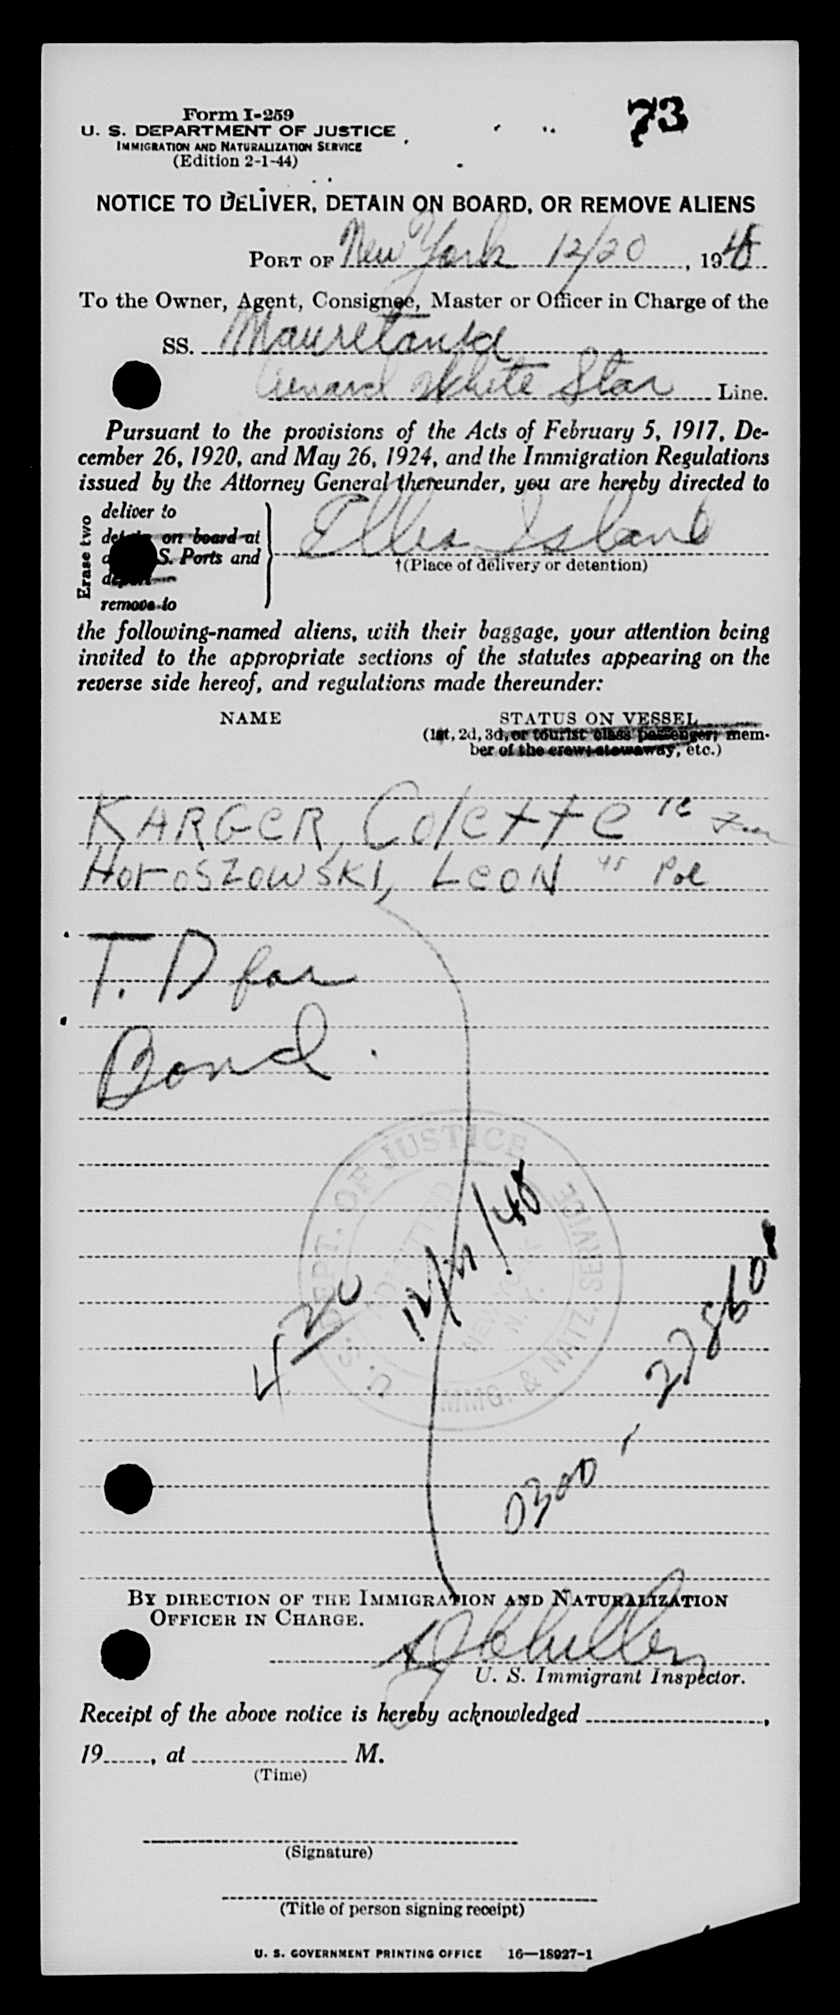 Form I-259
73
U. S. DEPARTMENT OF JUSTICE
IMMIGRATION AND NATURALIZATION SERVICE
(Edition 2-1-44)
NOTICE TO DELIVER, DETAIN ON BOARD, OR REMOVE ALIENS
PORT OF New York 12/20, 1948
To the Owner, Agent, Consignee, Master or Officer in Charge of the
SS. Mauretania
Cunard White Star Line.
Pursuant to the provisions of the Acts of February 5, 1917, De-
cember 26, 1920, and May 26, 1924, and the Immigration Regulations
issued by the Attorney General thereunder, you are hereby directed to
Erase two
deliver to
detain on board at
S. Ports and
deport
remove to
Ellis Island
†(Place of delivery or detention)
the following-named aliens, with their baggage, your attention being
invited to the appropriate sections of the statutes appearing on the
reverse side hereof, and regulations made thereunder:
NAME STATUS ON VESSEL
(1st, 2d, 3d, or tourist class passenger, mem-
ber of the crew, stowaway, etc.)
KARGER, Colette
HOROSZOWSKI, LEON 45 Pol
T. D for
Bond.
U. S. DEPT. OF JUSTICE
IMMG. & NATZ. SERVICE
NEW YORK
N. Y.
12/21/48
420
0300 - 278601
BY DIRECTION OF THE IMMIGRATION AND NATURALIZATION
OFFICER IN CHARGE.
U. S. Immigrant Inspector.
Receipt of the above notice is hereby acknowledged ,
19 , at M.
(Time)
(Signature)
(Title of person signing receipt)
U. S. GOVERNMENT PRINTING OFFICE 16—18927-1